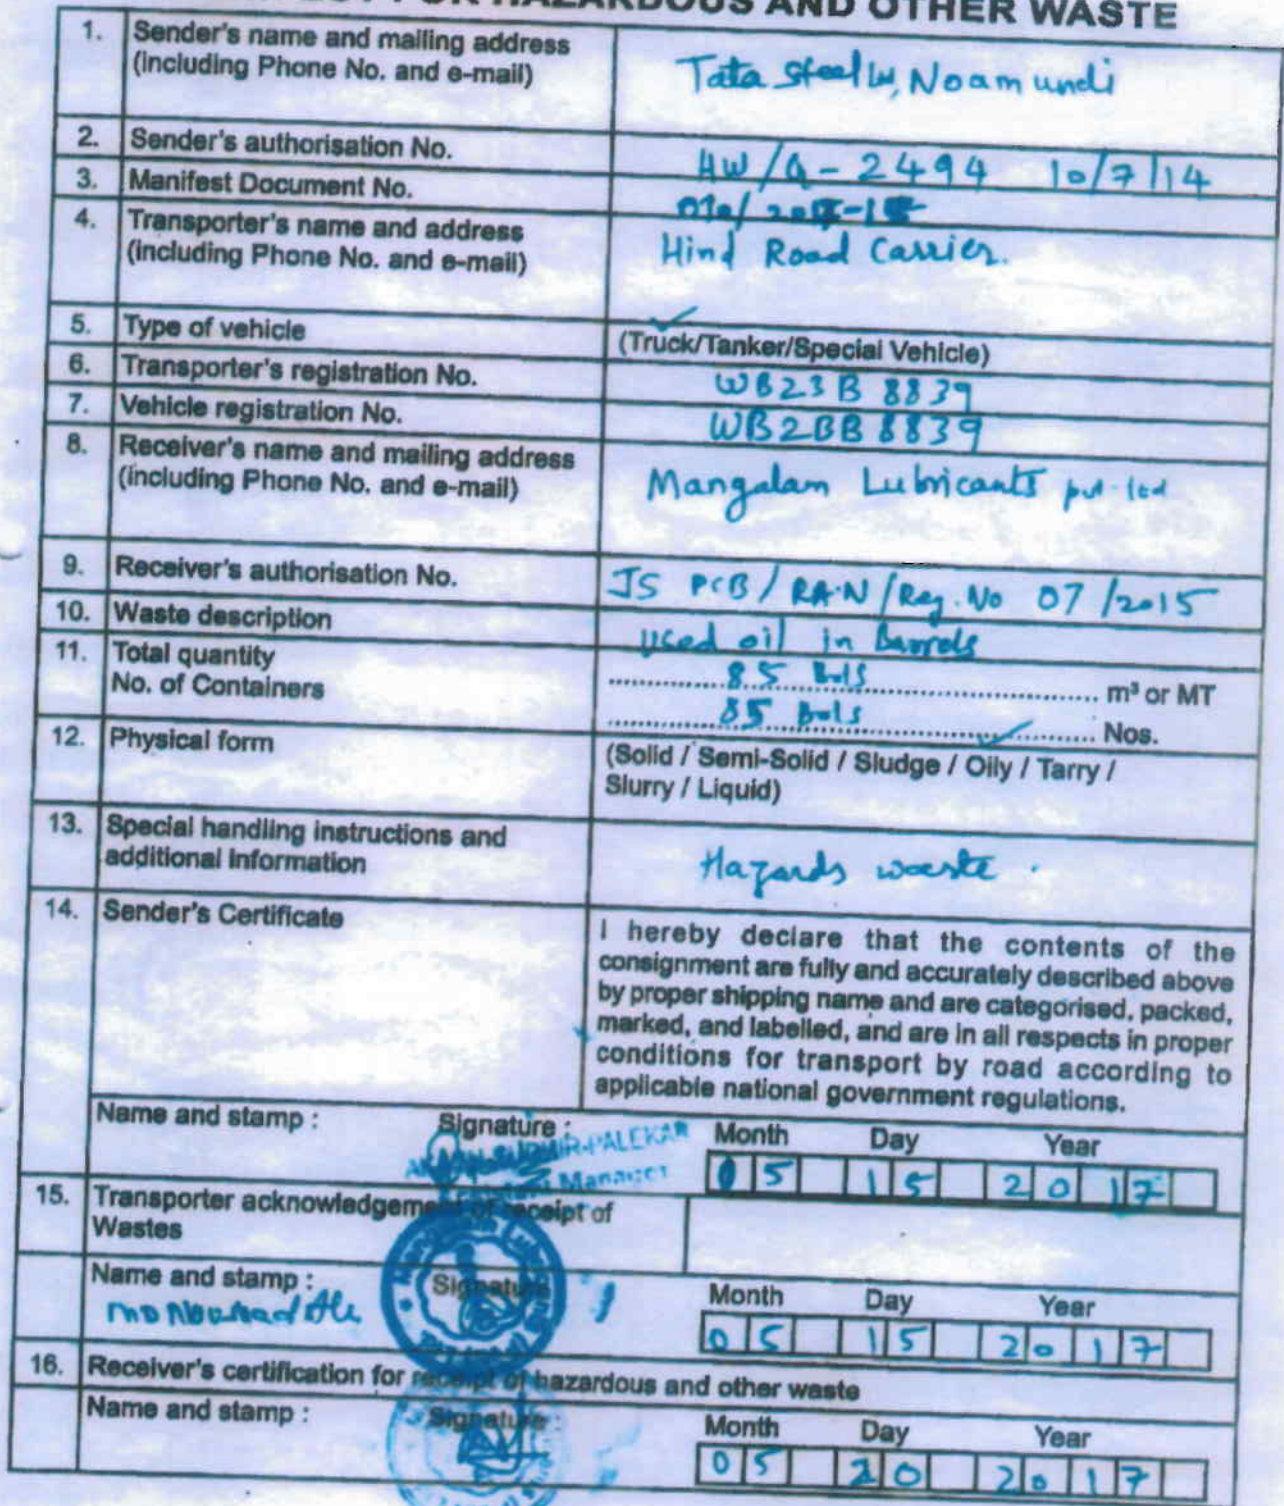 FOR HAZARDOUS AND OTHER WASTE
1. Sender's name and mailing address
(including Phone No. and e-mail)
Tata Steel Ltd, Noamundi
2. Sender's authorisation No.
HW/A-2494 10/7/14
3. Manifest Document No.
4. Transporter's name and address
(including Phone No. and e-mail)
Hind Road Carrier.
5. Type of vehicle
(Truck/Tanker/Special Vehicle)
6. Transporter's registration No.
WB23B 8839
7. Vehicle registration No.
WB2BB8839
8. Receiver's name and mailing address
(including Phone No. and e-mail)
Mangalam Lubricants pvt. ltd
9. Receiver's authorisation No.
JS PCB/RAN/Reg. No 07/2015
10. Waste description
Used oil in Barrels
11. Total quantity
85 Bols m³ or MT
No. of Containers
85 Bols Nos.
12. Physical form
(Solid / Semi-Solid / Sludge / Oily / Tarry /
Slurry / Liquid)
13. Special handling instructions and
additional information
Hazards waste.
14. Sender's Certificate
I hereby declare that the contents of the
consignment are fully and accurately described above
by proper shipping name and are categorised, packed,
marked, and labelled, and are in all respects in proper
conditions for transport by road according to
applicable national government regulations.
Name and stamp : Signature : Month Day Year
PALEKAR
Manager
05 15 2017
15. Transporter acknowledgement of receipt of
Wastes
Name and stamp : Signature Month Day Year
05 15 2017
16. Receiver's certification for receipt of hazardous and other waste
Name and stamp : Signature : Month Day Year
05 20 2017